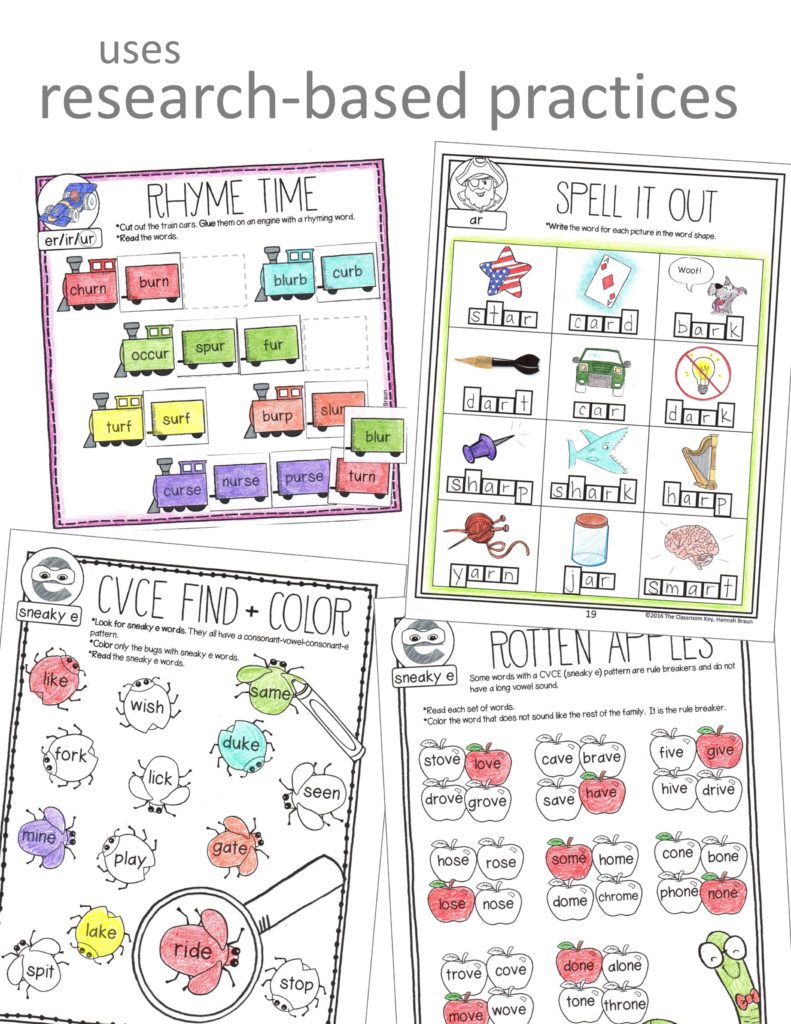 uses
research-based practices
RHYME TIME
*Cut out the train cars. Glue them on an engine with a rhyming word.
*Read the words.
er/ir/ur
churn burn blurb curb
occur spur fur
turf surf burp slur
blur
curse nurse purse turn
Braun
SPELL IT OUT
*Write the word for each picture in the word shape.
ar
Woof!
star card bark
dart car dark
sharp shark harp
yarn jar smart
19
©2016 The Classroom Key, Hannah Braun
CVCE FIND + COLOR
*Look for sneaky e words. They all have a consonant-vowel-consonant-e
pattern.
*Color only the bugs with sneaky e words.
*Read the sneaky e words.
e
sneaky e
like
wish
same
fork
duke
lick
seen
mine
play
gate
lake
ride
spit
stop
ROTTEN APPLES
Some words with a CVCE (sneaky e) pattern are rule breakers and do not
have a long vowel sound.
*Read each set of words.
*Color the word that does not sound like the rest of the family. It is the rule breaker.
e
sneaky e
stove love cave brave five give
drove grove save have hive drive
hose rose some home cone bone
lose nose dome chrome phone none
trove cove done alone
move wove tone throne